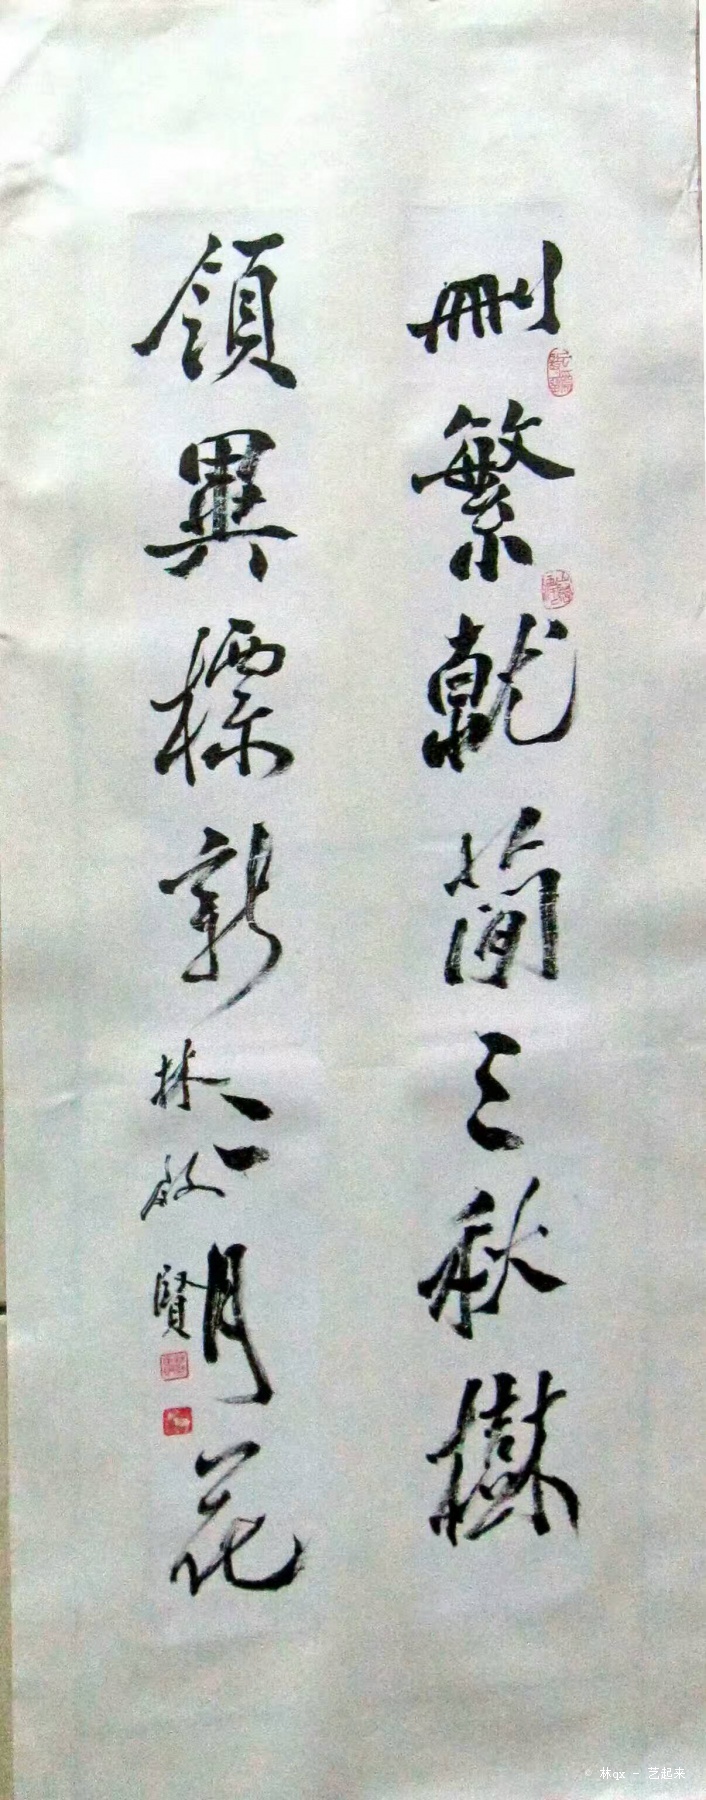 刪繁就簡三秋樹
領異標新二月花
林啟賢
© 林qx - 艺起来